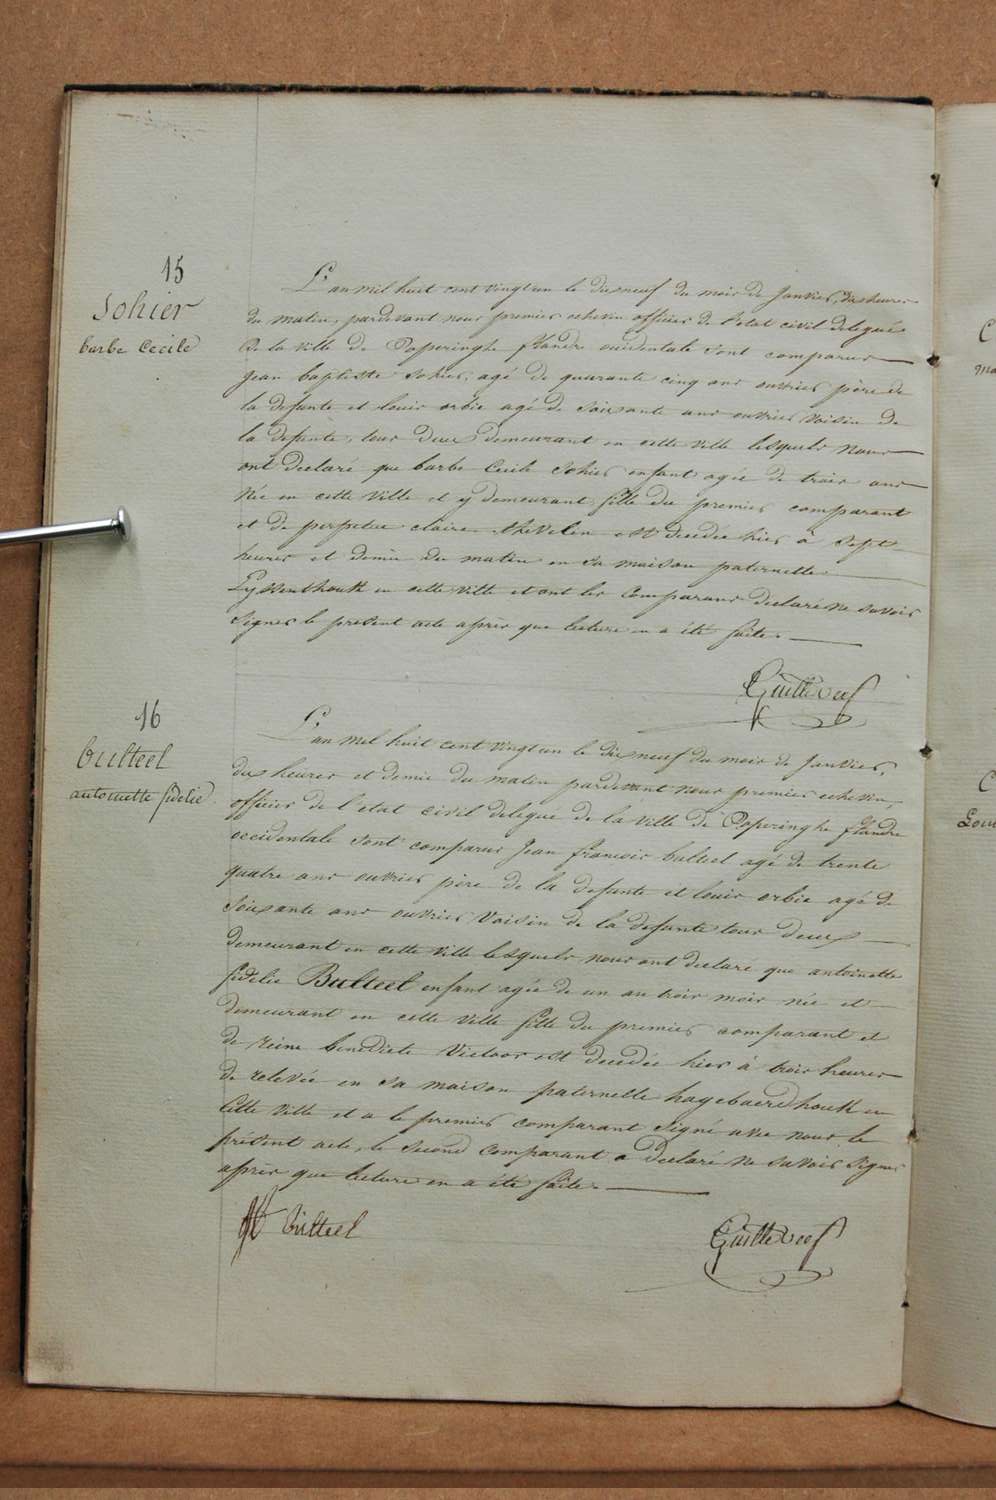 15
Sohier
barbe Cecile
L'an mil huit cent vingt un le dix neuf du mois de Janvier, dix heures
du matin, pardevant nous premier echevin officier de l'etat civil delegué
De la ville de Poperinghe flandre occidentale sont comparus
Jean baptiste Sohier, agé de quarante cinq ans ouvrier père de
la defunte et louis orbie agé de soixante ans ouvrier voisin de
la defunte, tous deux demeurant en cette ville lesquels nous
ont declaré que barbe Cecile Sohier enfant agée de trois ans
Née en cette ville et y demeurant fille du premier comparant
et de perpetue claire thevelen est decedée hier à sept
heures et demie du matin en sa maison paternelle
Eyssenthoutk en cette ville et ont les Comparans declaré ne savoir
Signer le present acte après que lecture en a été faite.
Guilleveef
16
bulteel
antoinette fidelie
L'an mil huit cent vingt un le dix neuf du mois de Janvier,
dix heures et demie du matin pardevant nous premier echevin,
officier de l'etat civil delegué de la ville de Poperinghe flandre
occidentale sont comparus Jean francois bulteel agé de trente
quatre ans ouvrier père de la defunte et louis orbie agé de
soixante ans ouvrier Voisin de la defunte tous deux
demeurant en cette ville lesquels nous ont declaré que antoinette
fidelie Bulteel enfant agée de un an trois mois née et
demeurant en cette ville fille du premier comparant et
de reine benedicte Victoor est decedée hier à trois heures
de relevée en sa maison paternelle hagebaerdhoutk en
Cette ville et a le premier comparant Signé avec nous le
présent acte, le second comparant a declaré ne savoir signer
après que lecture en a été faite.
bulteel
Guilleveef
C
C